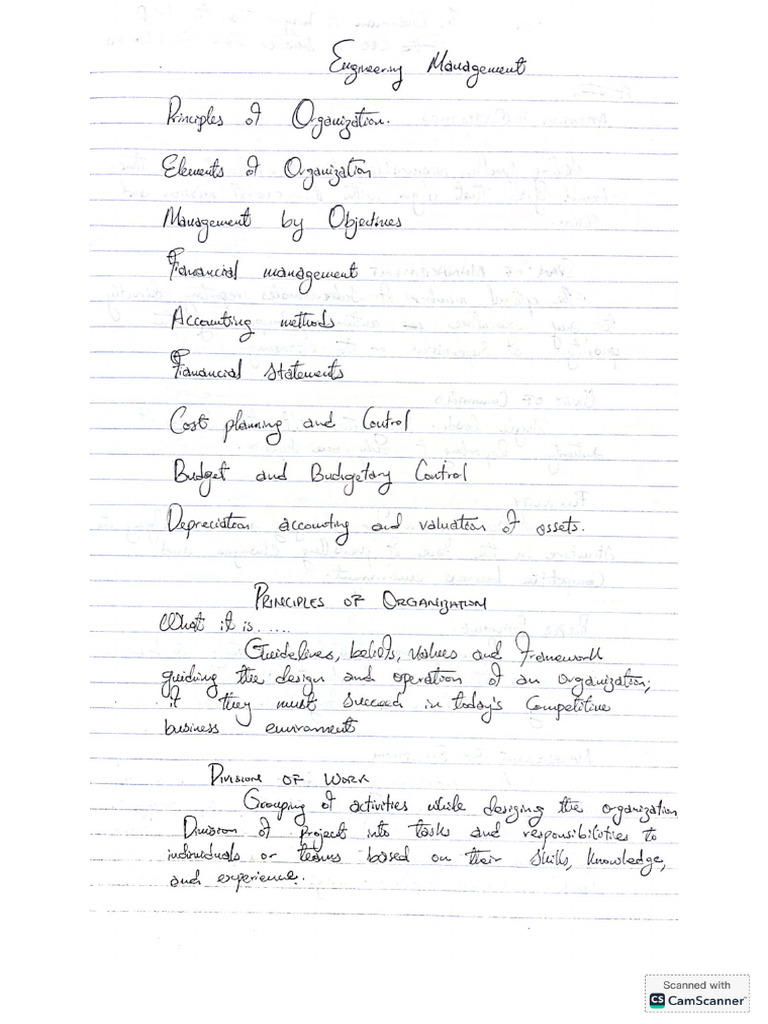 Engineering Management
Principles of Organization.
Elements of Organization
Management by Objectives
Financial management
Accounting methods
Financial statements
Cost planning and Control
Budget and Budgetary Control
Depreciation accounting and valuation of assets.
PRINCIPLES OF ORGANIZATION
What it is.....
Guidelines, beliefs, values and Framework
guiding the design and operation of an organization;
if they must succeed in today's Competitive
business environment
DIVISION OF WORK
Grouping of activities while designing the organization
Division of project into tasks and responsibilities to
individuals or teams based on their skills, knowledge,
and experience.
Scanned with
CS CamScanner